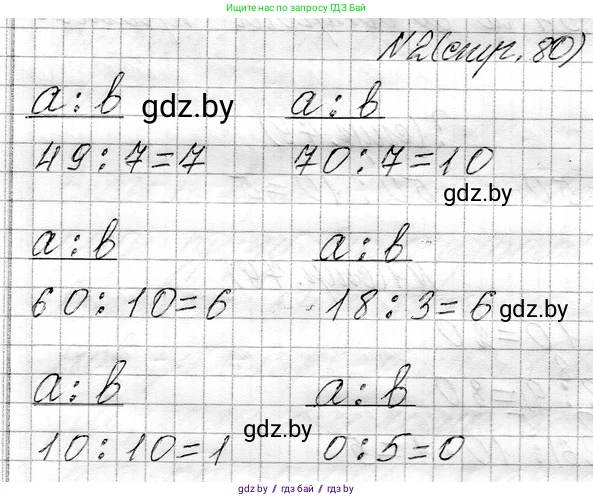 Ищите нас по запросу ГДЗ Бай
N2 (стр. 80)
a : b gdz.by a : b
49 : 7 = 7 70 : 7 = 10
gdz.by
a : b a : b
60 : 10 = 6 18 : 3 = 6 gdz.by
a : b a : b
gdz.by
10 : 10 = 1 0 : 5 = 0
gdz.by / гдз бай / gdz.by